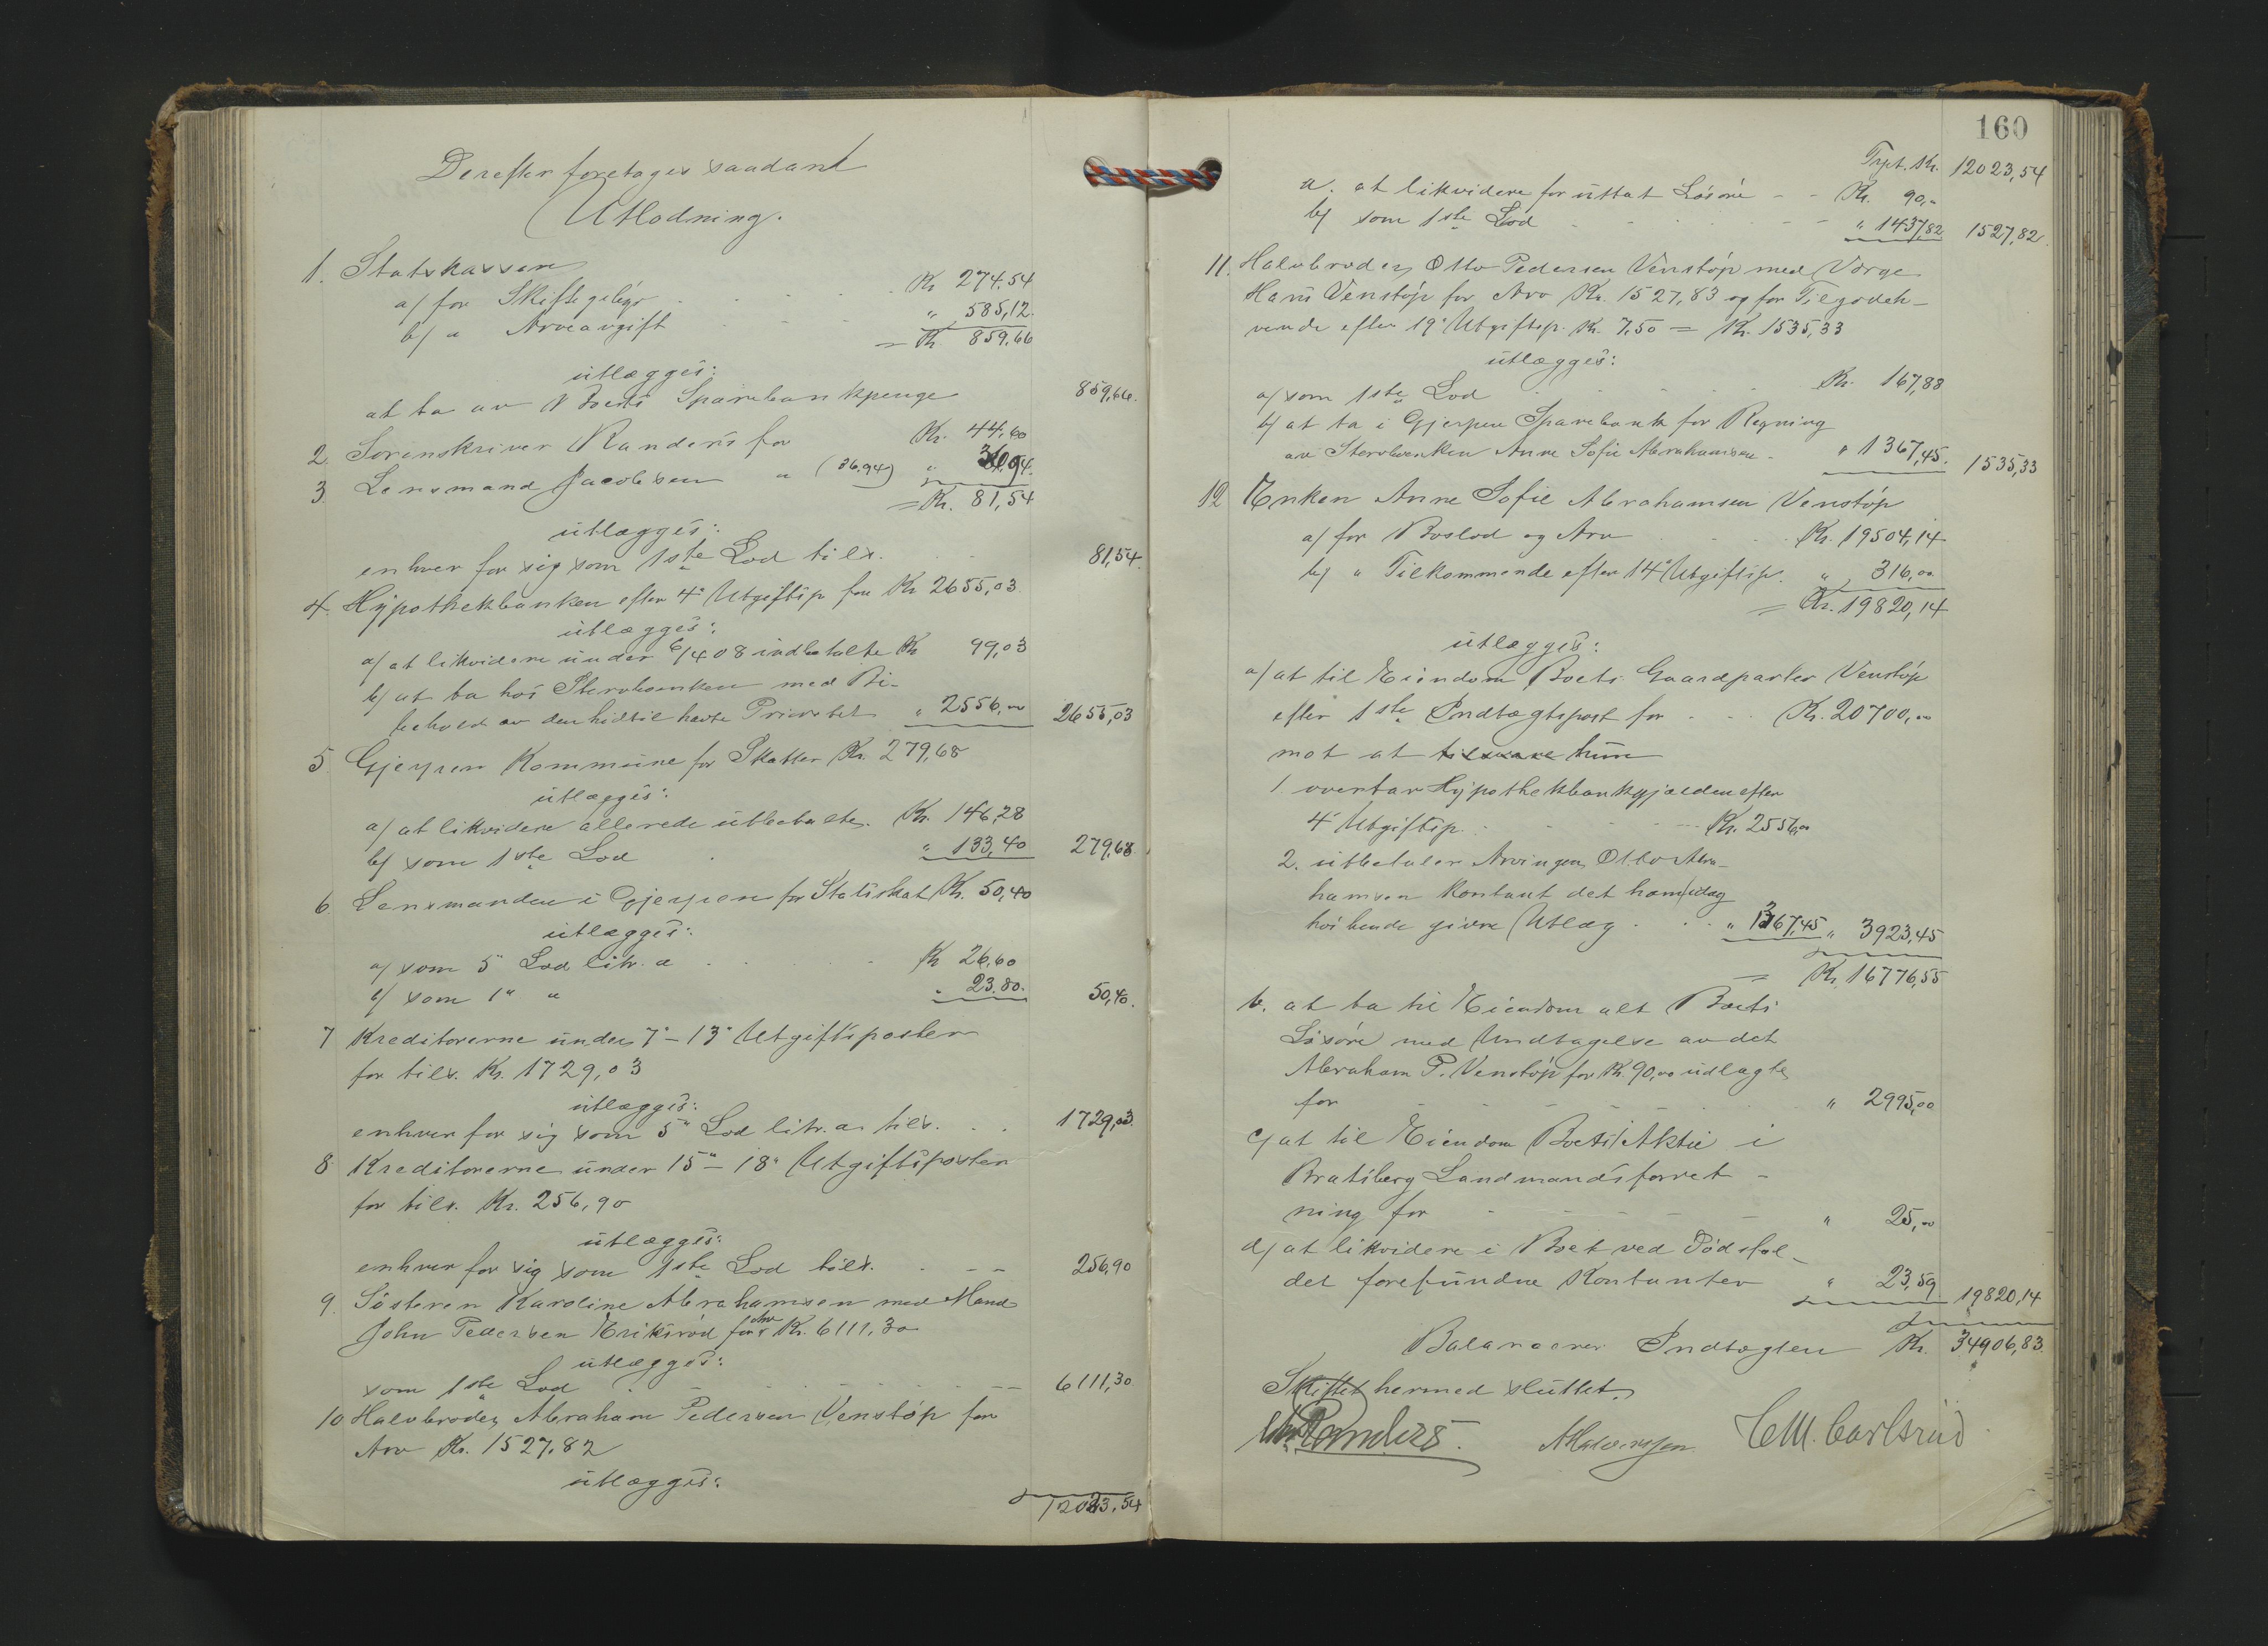 Derefter foretages saadan
Utlodning.
1. Statskassen
a/ for Skiftegebyr . . . . Kr 274,54
b/ " Arveavgift . . . " 585,12
= Kr. 859,66
utlægges:
at ta av Boets Sparebankpenge 859,66.
2. Sorenskriver Randers for Kr. 44,60
3. Lensmand Jacobsen " (36.94) " 36,94.
= Kr. 81,54
utlægges:
enhver for sig som 1ste Lod tils. . . 81,54.
4. Hypothekbanken efter 4" Utgiftsp for Kr 2655,03
utlægges:
a/ at likvidere under 6/4 08 indbetalte Kr 99,03
b/ at ta hos Stervboenken med Bi-
behold av den hidtil havte Prioritet " 2556,00 2655,03
5. Gjerpen Kommune for Skatter Kr. 279,68
utlægges:
a/ at likvidere allerede utbetalte. Kr. 146,28
b/ som 1ste Lod . " 133,40 279,68.
6. Lensmanden i Gjerpen for Statsskat Kr. 50,40
utlægges:
a/ som 5" Lod litr. a . . . Kr 26,60
b/ som 1" " " 23.80. 50,40.
7 Kreditorerne under 7"-13" Utgiftsposter
for tils. Kr. 1729,03
utlægges:
enhver for sig som 5" Lod litr. a. tils. . . 1729,03.
8 Kreditorerne under 15"-18" Utgiftsposter
for tils. Kr. 256,90
utlægges:
enhver for sig som 1ste Lod tils. . - - 256,90
9. Søsteren Karoline Abrahamsen med Mand
John Pedersen Eriksrød for Arv Kr. 6111,30
utlægges:
som 1ste Lod . . . . . - - 6111,30
10 Halvbroder Abraham Pedersen Venstøp for
Arv Kr. 1527,82
utlægges:
12023,54
160
Trpt. Kr. 12023,54
a. at likvidere for uttat Løsøre - - Kr. 90,-
b/ som 1ste Lod . . . - - " 1437,82 1527,82.
11. Halvbroder Otto Pedersen Venstøp med Verge
Hans Venstøp for Arv Kr. 1527,83 og for Tilgodeha-
vende efter 19" Utgiftsp. Kr. 7,50 = Kr. 1535,33
utlægges:
a/ som 1ste Lod . . . . Kr. 167,88
b/ at ta i Gjerpen Sparebank for Regning
av Stervboenken Anne Sofie Abrahamsen - " 1367,45. 1535,33
12 Enken Anne Sofie Abrahamsen Venstøp
a/ for Boslod og Arv . . . . Kr. 19504,14
b/ " Tilkommende efter 14" Utgiftsp. " 316,00
= Kr. 19820,14
utlægges:
a/ at til Eiendom Boets Gaardparter Venstøp
efter 1ste Indtægtspost for . . . Kr. 20700,00
mot at tilsvare hun
1 overtar Hypothekbankgjælden efter
4" Utgiftsp. . . . . Kr. 2556,00
2. utbetaler Arvingen Otto Abra-
hamsen kontant det ham idag
hos hende givne Utlæg . . . " 1367,45 " 3923,45
= Kr. 16776,55
b. at ta til Eiendom alt Boets
Løsøre med Undtagelse av det
Abraham P. Venstøp for Kr. 90,00 udlagte,
for - - - . . " 2995,00
c/ at til Eiendom Boets Aktie i
Bratsberg Landmandsforret-
ning for - - - - " 25,00
d/ at likvidere i Boet ved Dødsfal-
det forefundne Kontanter " 23,59 19820,14
Balancerer Indtægten Kr. 34906,83.
Skiftet hermed sluttet.
Chr. Randers. A Halvorssen C M. Carlsrud